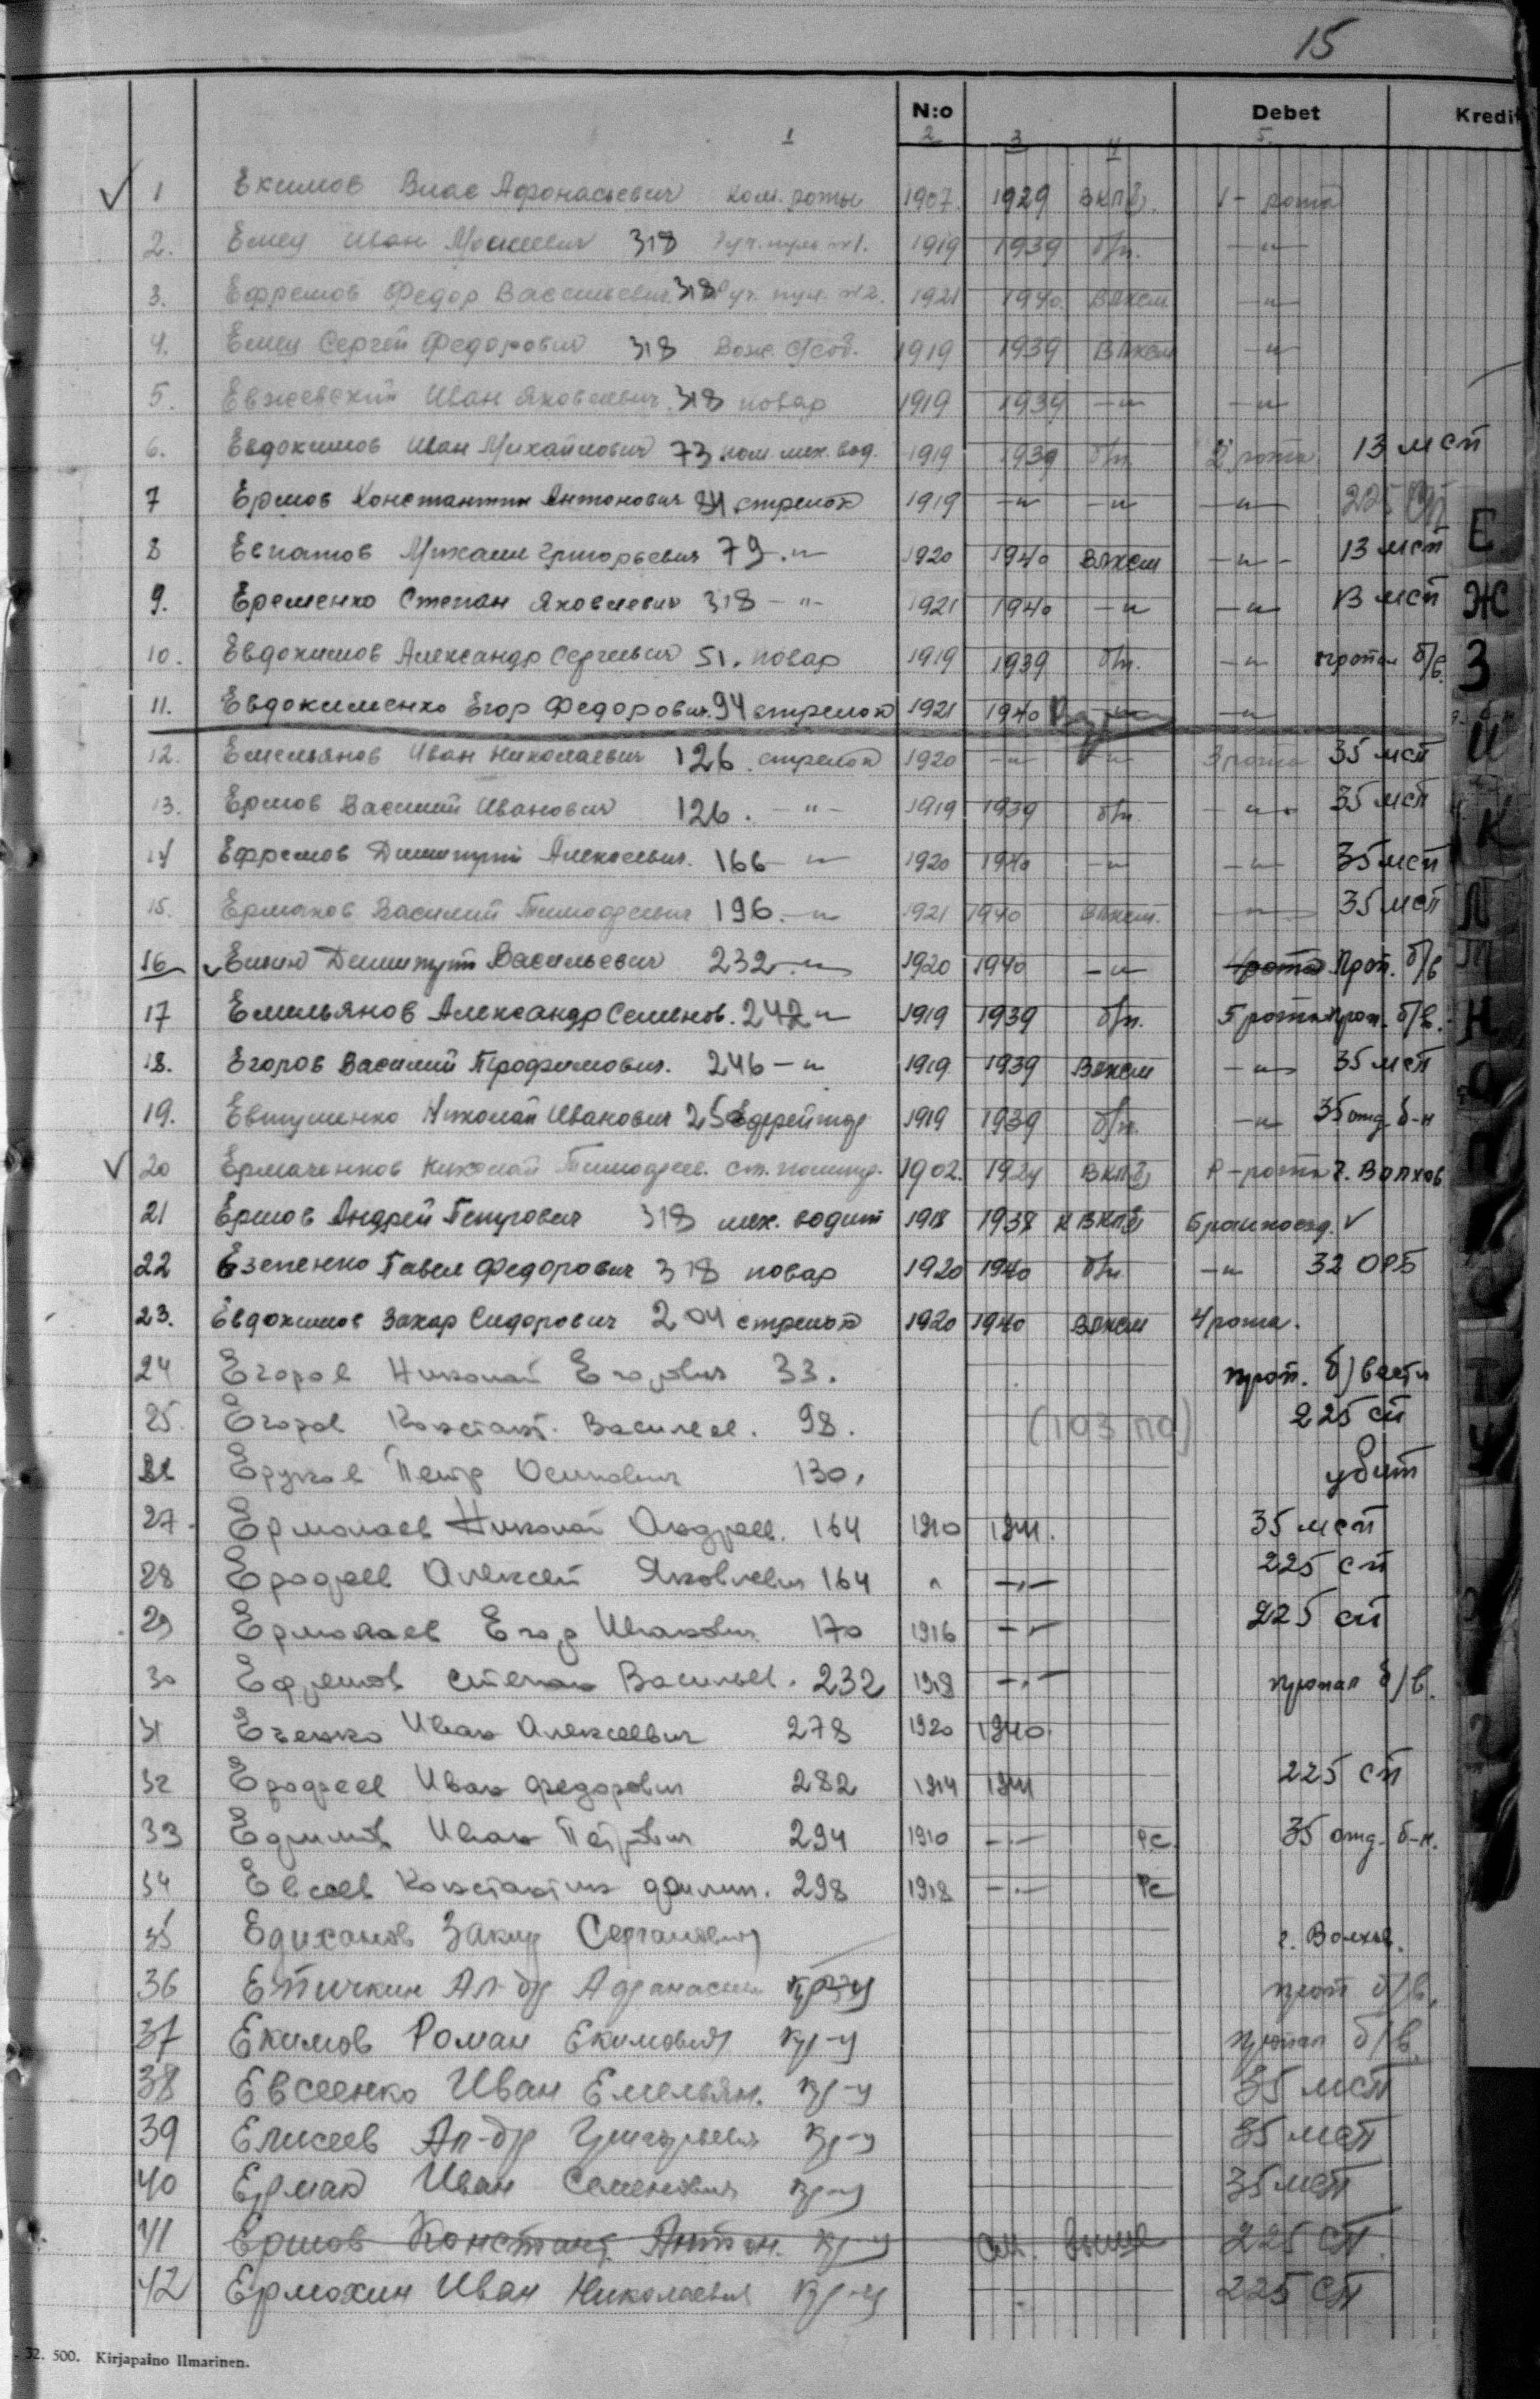 15
N:o Debet Kredit
1 2 3 4 5.
✓ 1 Екимов Влас Афонасьевич ком. роты 1907. 1929 ВКП(б). 1 - рота
2. Емец Иван Моисеевич 318 Руч. пул. №1. 1919 1939 б/п. —"—
3. Ефремов Федор Васильевич. 318 Руч. пул. №2. 1921 1940. ВЛКСМ —"—
4. Емец Сергей Федорович 318 1919 1939 ВЛКСМ —"—
5. Евжевский Иван Яковлевич. 318 повар 1919 1939 —"— —"—
6. Евдокимов Иван Михайлович 73. пом. мех. вод. 1919 1939 б/п. 2 рота 13 мсп
7 Ершов Константин Антонович 84 стрелок 1919 —"— —"— —"— 225 сп
8 Евпатов Михаил Григорьевич 79. —"— 1920 1940 ВЛКСМ —"— 13 мсп
9. Еременко Степан Яковлевич 318 —"— 1921 1940 —"— —"— 13 мсп
10. Евдокимов Александр Сергеевич 51. повар 1919 1939 б/п. —"— пропал б/в.
11. Евдокименко Егор Федорович. 94 стрелок 1921 1940 —"— —"—
12. Емельянов Иван Николаевич 126. стрелок 1920 —"— —"— 3 рота 35 мсп
13. Ершов Василий Иванович 126. —"— 1919 1939 б/п. —"— 35 мсп
14 Ефремов Димитрий Алексеевич. 166 —"— 1920 1940 —"— —"— 35 мсп
15. Ермаков Василий Тимофеевич 196. —"— 1921 1940 ВЛКСМ. —"— 35 мсп
16 ✓ Елкин Димитрий Васильевич 232. —"— 1920 1940 —"— 4 рота Проп. б/в
17 Емельянов Александр Семенов. 242 —"— 1919 1939 б/п. 5 рота проп. б/в.
18. Егоров Василий Трофимович. 246 —"— 1919 1939 ВЛКСМ —"— 35 мсп
19. Евтушенко Николай Иванович 250 ефрейтор 1919 1939 б/п. —"— 35 отд. б-н
✓ 20 Ермаченков Николай Тимофеев. 1902. 1924 ВКП(б) Р - рота г. Волхов
21 Ершов Андрей Петрович 318 мех. водит 1918 1938 К ВКП(б) ✓
22 Езепенко Павел Федорович 318 повар 1920 1940 б/п —"— 32 ОРБ
23. Евдокимов Захар Сидорович 204 стрелок 1920 1940 ВЛКСМ 4 рота.
24 Егоров Николай Егорович 33. проп. б/вести
25. Егоров Констант. Васильев. 98. (103 по) 225 сп
26 Петр Осипович 130. убит
27. Ермолаев Николай Андреев. 164 1910 1941. 35 мсп
28 Ерофеев Алексей Яковлевич 164 " —"— 225 сп
29 Ермолаев Егор Иванович 170 1916 —"— 225 сп
30 Ефремов Степан Васильев. 232 1918 —"— пропал б/в.
31 Еченко Иван Алексеевич 278 1920 1940.
32 Ерофеев Иван Федорович 282 1914 1941 225 сп
33 Иван Петрович 294 1910 —"— Р.С. 35 отд. б-н.
34 Евсеев Константин 298 1918 —"— РС
35 Едиханов Закир г. Волхов.
36 Ептичкин Ал-др Афанасьев кр-ц проп б/в.
37 Екимов Роман Екимович кр-ц пропал б/в.
38 Евсеенко Иван Емельян. кр-ц 35 мсп
39 Елисеев Ал-др Григорьевич кр-ц 35 мсп
40 Ермак Иван Семенович кр-ц 35 мсп
41 Ершов Констант. Антон. кр-ц см. выше 225 сп.
42 Ермохин Иван Николаевич кр-ц 225 сп
Е
Ж
З
И
К
Л
М
Н
О
П
Т
У
32. 500. Kirjapaino Ilmarinen.